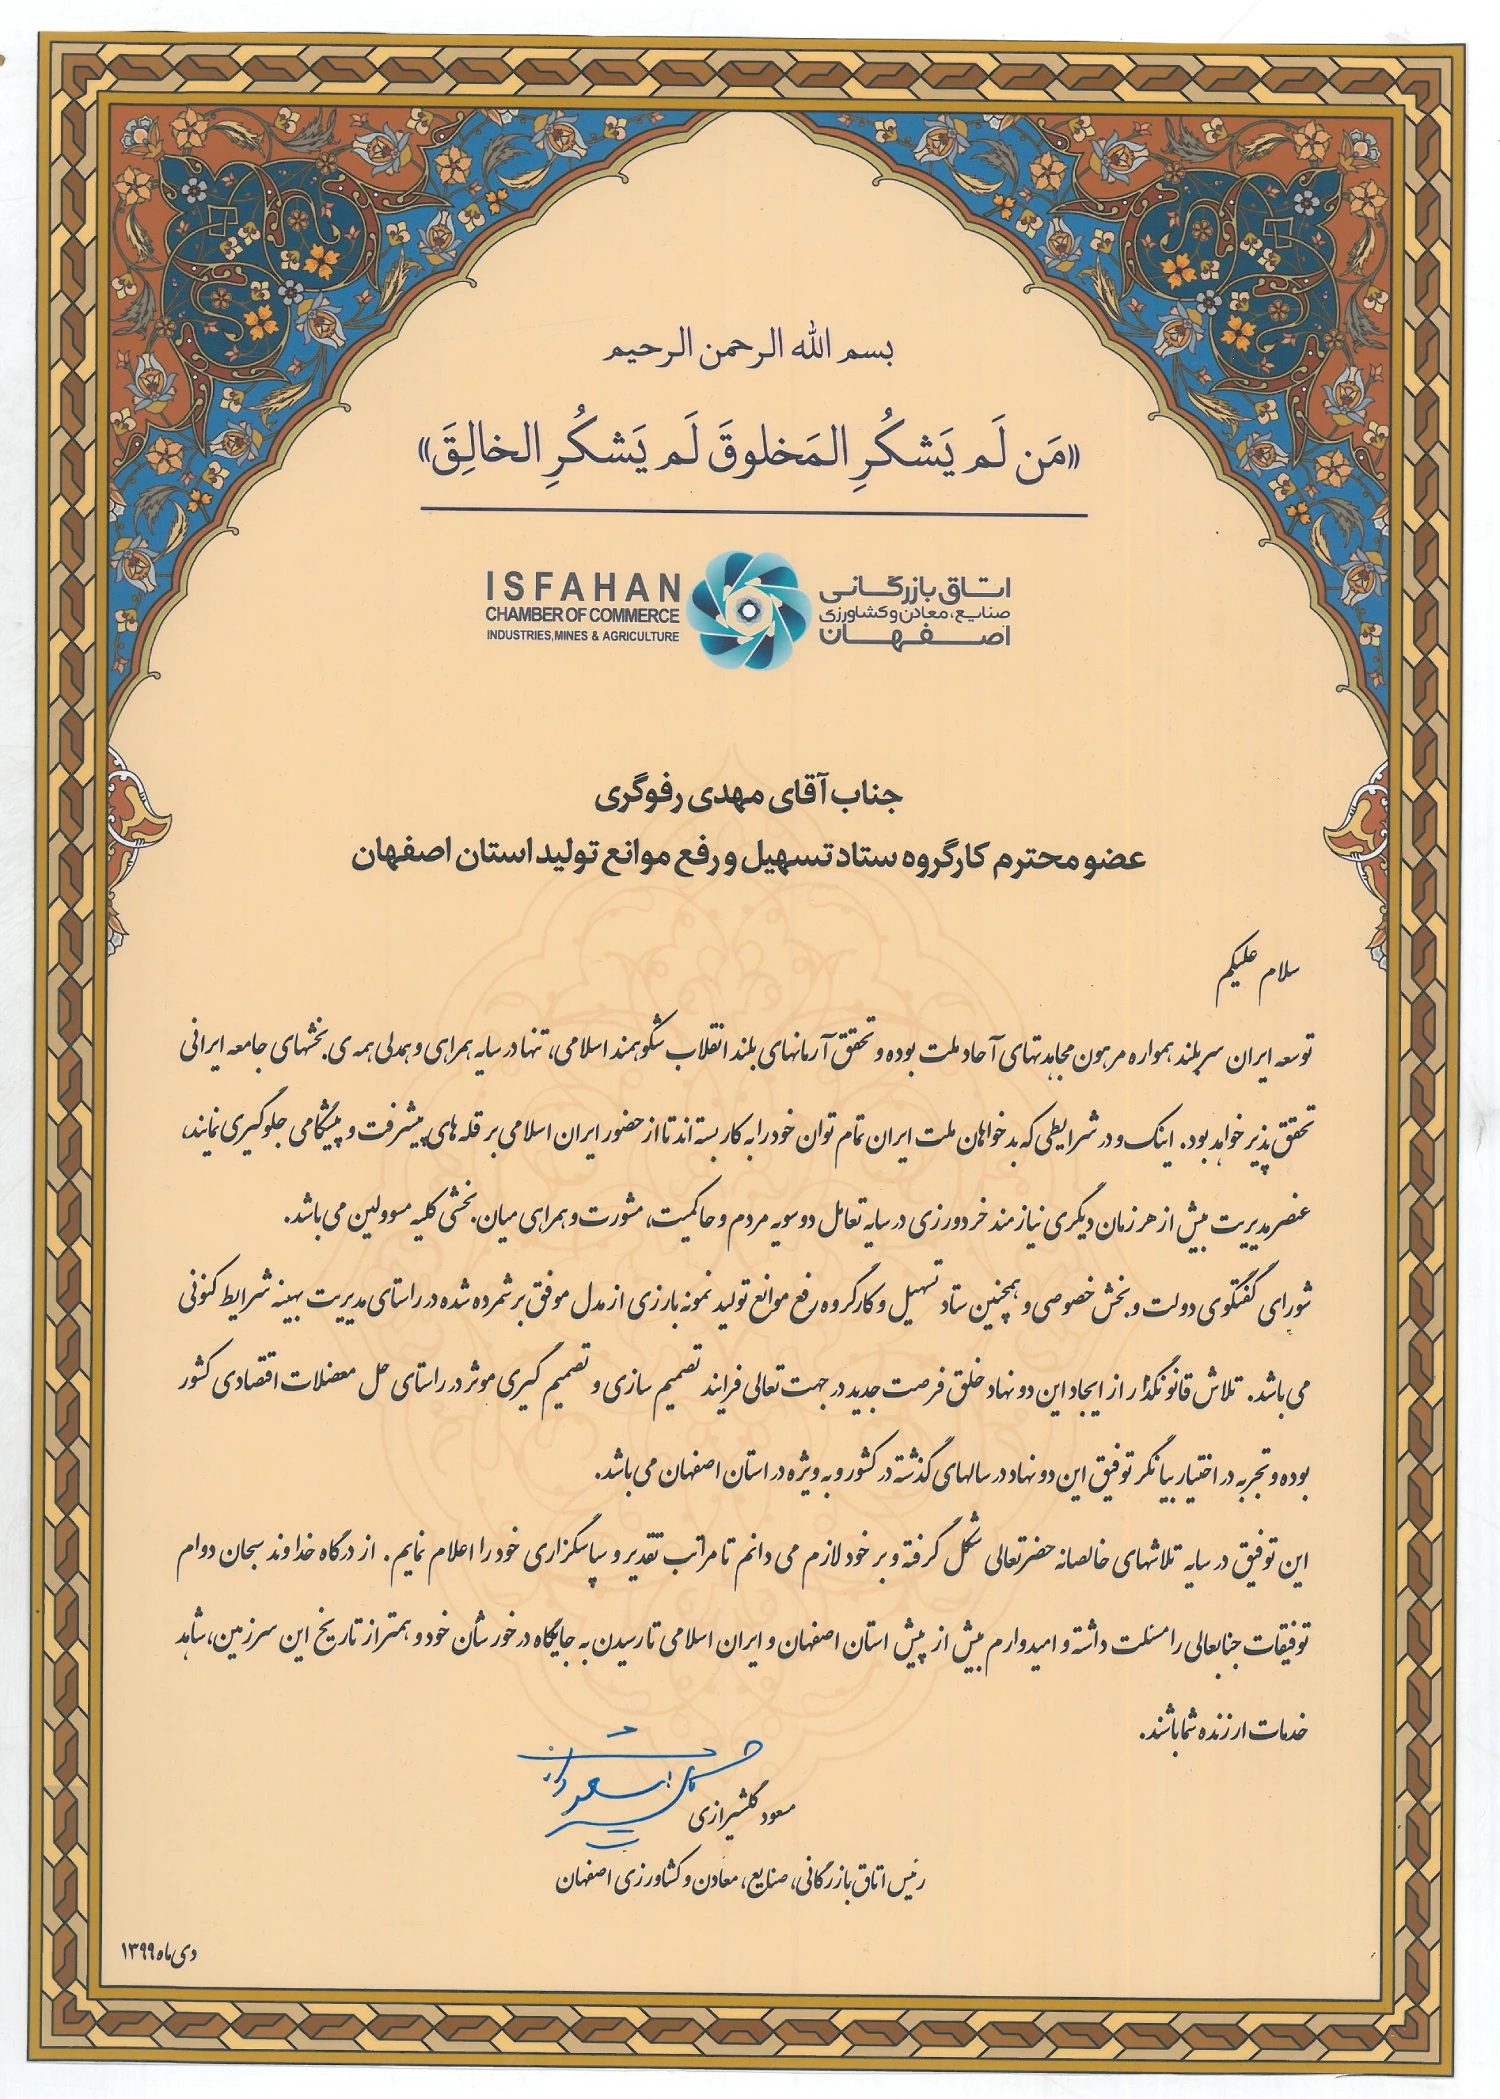 بسم الله الرحمن الرحیم
«مَن لَم یَشکُرِ المَخلوقَ لَم یَشکُرِ الخالِقَ»
ISFAHAN
CHAMBER OF COMMERCE
INDUSTRIES,MINES & AGRICULTURE
اتاق بازرگانی
صنایع، معادن و کشاورزی
اصفهان
جناب آقای مهدی رفوگری
عضو محترم کارگروه ستاد تسهیل و رفع موانع تولید استان اصفهان
سلام علیکم
توسعه ایران سربلند همواره مرهون مجاهدتهای آحاد ملت بوده و تحقق آرمانهای بلند انقلاب شکوهمند اسلامی، تنها در سایه همراهی و همدلی همه ی بخشهای جامعه ایرانی
تحقق پذیر خواهد بود. اینک و در شرایطی که بدخواهان ملت ایران تمام توان خود را به کار بسته اند تا از حضور ایران اسلامی بر قله های پیشرفت و پیشگامی جلوگیری نمایند،
عنصر مدیریت بیش از هر زمان دیگری نیازمند خردورزی در سایه تعامل دوسویه مردم و حاکمیت، مشورت و همراهی میان بخشی کلیه مسوولین می باشد.
شورای گفتگوی دولت و بخش خصوصی و همچنین ستاد تسهیل و کارگروه رفع موانع تولید نمونه بارزی از مدل موفق برشمرده شده در راستای مدیریت بهینه شرایط کنونی
می باشد. تلاش قانونگذار از ایجاد این دو نهاد خلق فرصت جدید در جهت تعالی فرایند تصمیم سازی و تصمیم گیری موثر در راستای حل معضلات اقتصادی کشور
بوده و تجربه در اختیار بیانگر توفیق این دو نهاد در سالهای گذشته در کشور و به ویژه در استان اصفهان می باشد.
این توفیق در سایه تلاشهای خالصانه حضرتعالی شکل گرفته و بر خود لازم می دانم تا مراتب تقدیر و سپاسگزاری خود را اعلام نمایم. از درگاه خداوند سبحان دوام
توفیقات جنابعالی را مسئلت داشته و امیدوارم بیش از پیش استان اصفهان و ایران اسلامی تا رسیدن به جایگاه درخور شان خود و همتراز تاریخ این سرزمین، شاهد
خدمات ارزنده شما باشند.
مسعود گلشیرازی
رئیس اتاق بازرگانی، صنایع، معادن و کشاورزی اصفهان
دی ماه ۱۳۹۹